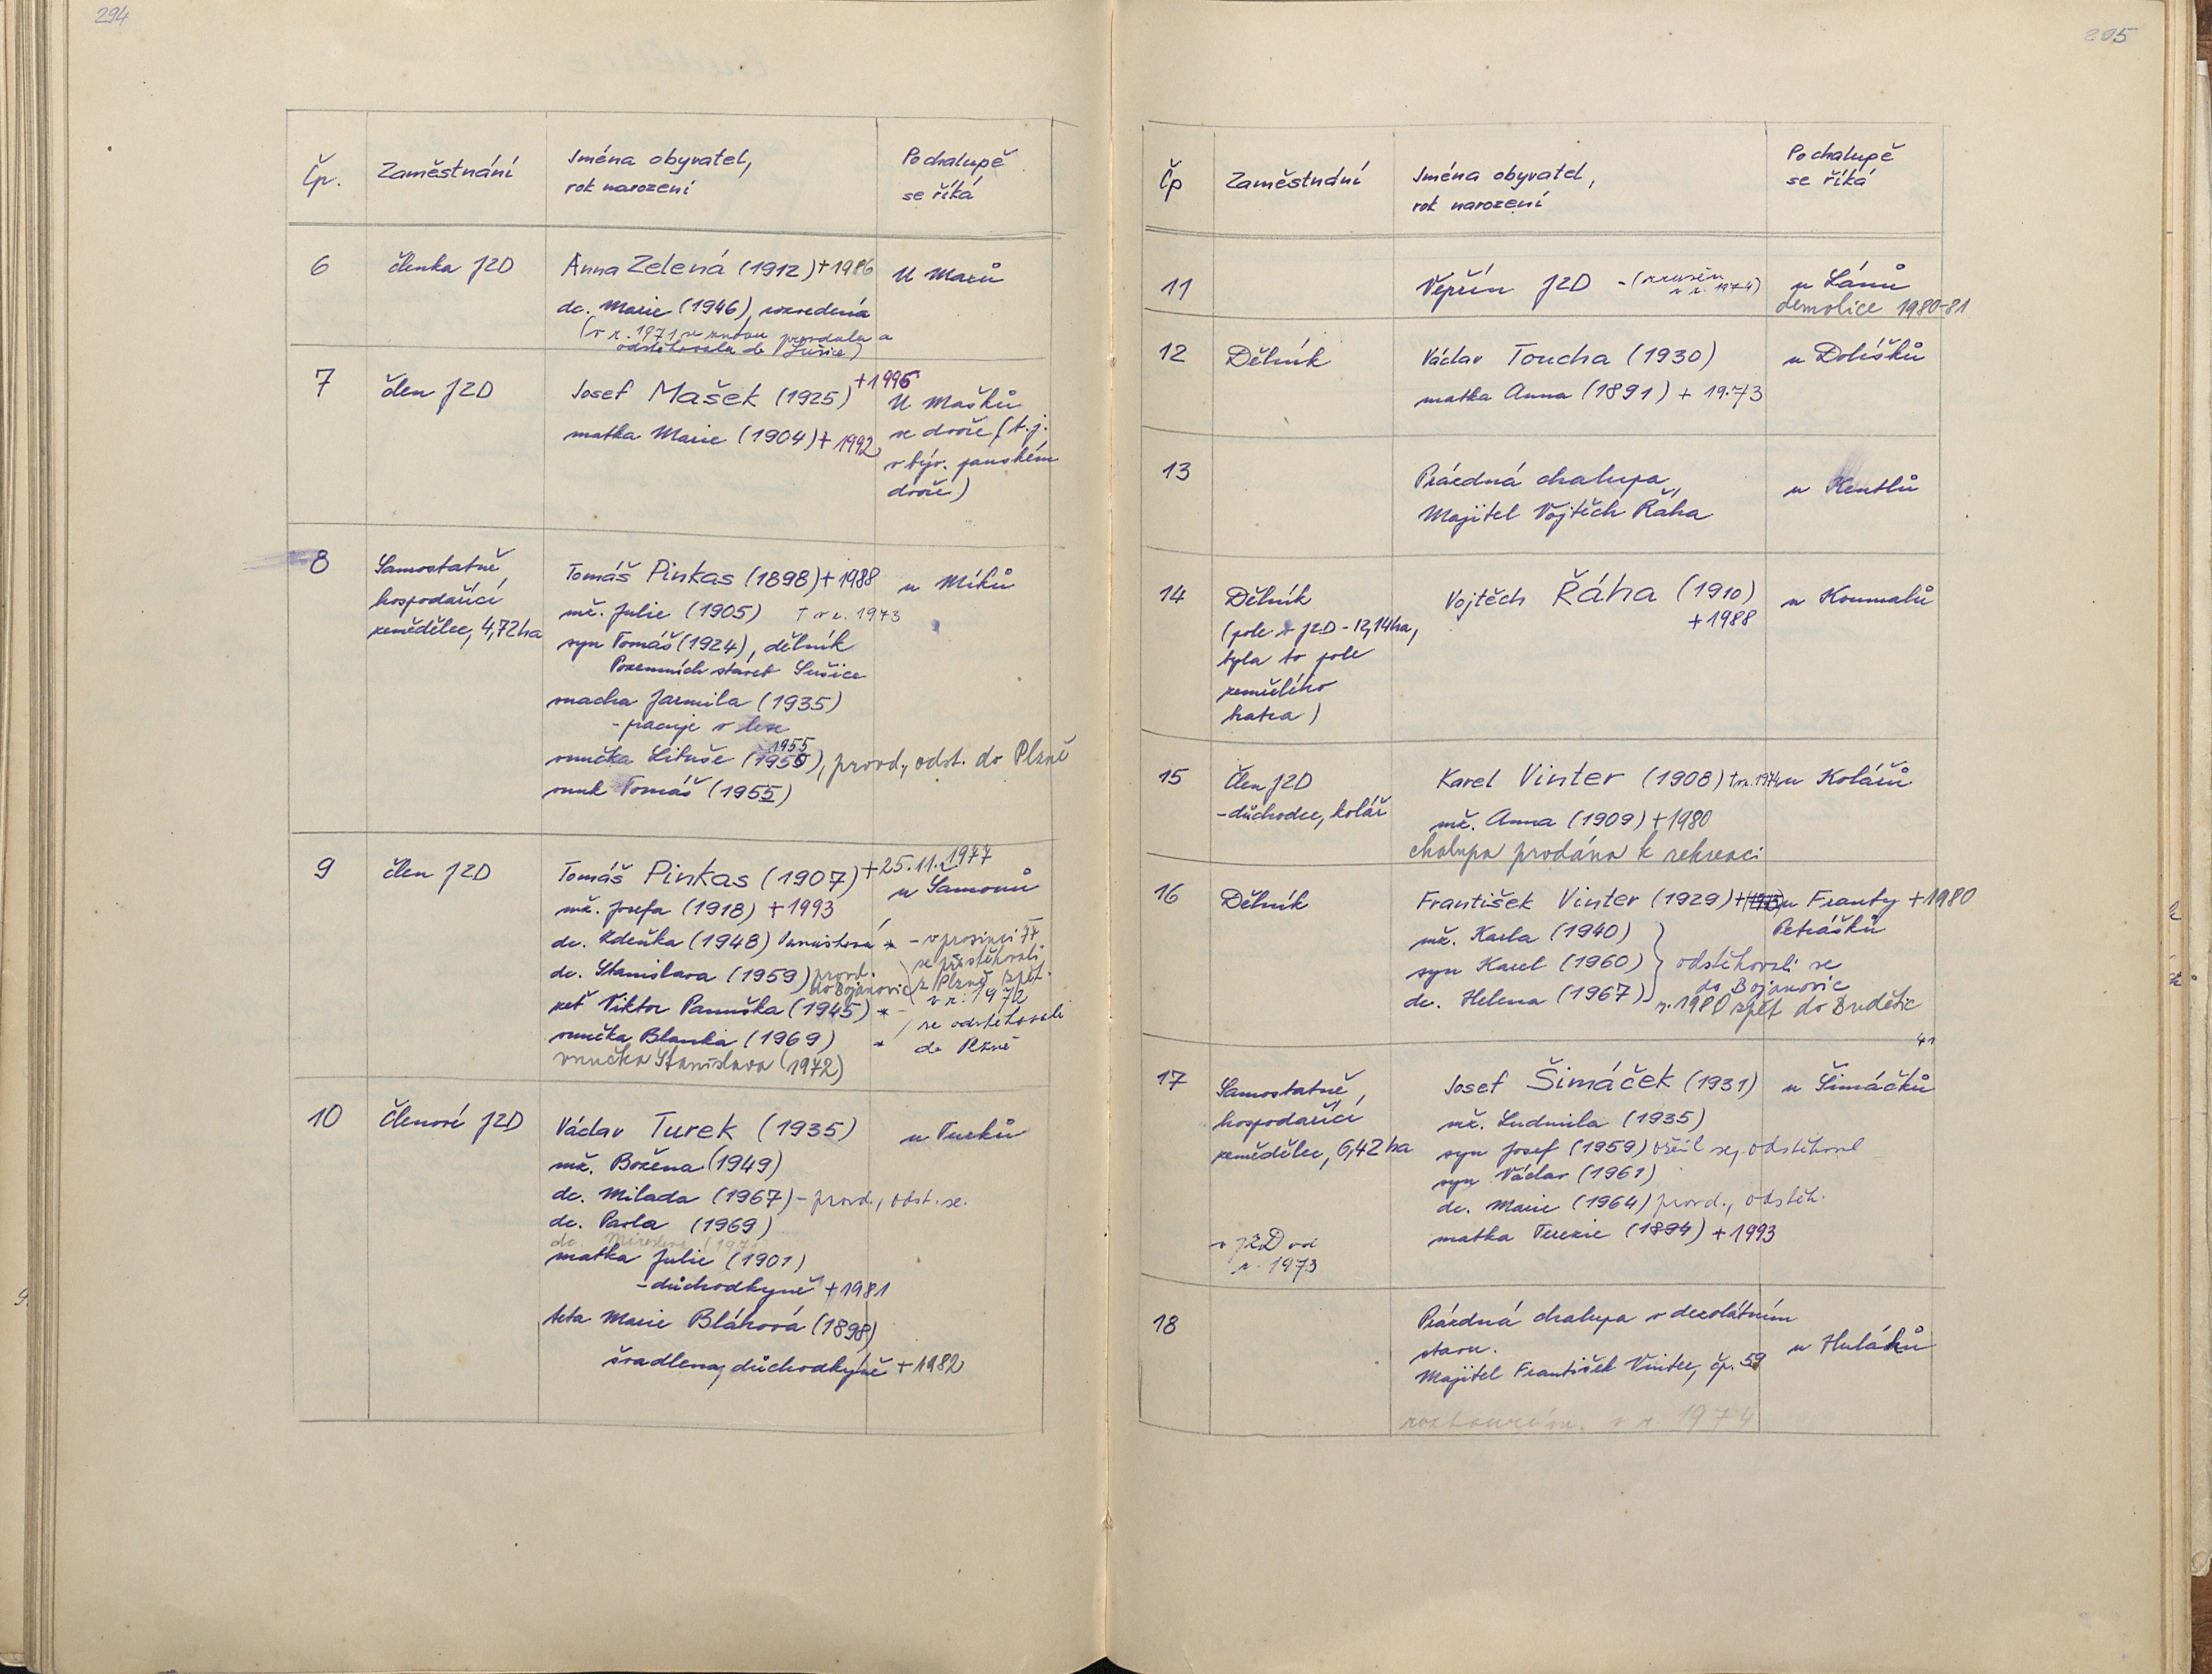 294
Čp.
Zaměstnání
Jména obyvatel,
rok narození
Po chalupě
se říká
6
členka JZD
Anna Zelená (1912) + 1986
dc. Marie (1946), rozvedená
(v r. 1971 se znovu provdala a
odstěhovala do Sušice)
U Marů
7
člen JZD
Josef Mašek (1925) + 1995
matka Marie (1904) + 1992
U Mašků
ve dvoře (t. j.
v býv. panském
dvoře)
8
Samostatně
hospodařící
zemědělec, 4,72 ha
Tomáš Pinkas (1898) + 1988
mž. Julie (1905) † v r. 1973
syn Tomáš (1924), dělník
Pozemních staveb Sušice
snacha Jarmila (1935)
- pracuje v lese
1955
vnučka Libuše (1950), provd., odst. do Plzně
vnuk Tomáš (1955)
u Míků
9
člen JZD
Tomáš Pinkas (1907) + 25. 11. 1977
mž. Josefa (1918) + 1993
dc. Zdeňka (1948) Panušková *
dc. Stanislava (1959) provd.
do Bojanovic
zeť Viktor Panuška (1945) *
vnučka Blanka (1969) *
vnučka Stanislava (1972)
u Samonů
- v prosinci 77
se přistěhovali
z Plzně zpět.
v r. 1972
se odstěhovali
do Plzně
10
Členové JZD
Václav Turek (1935)
mž. Božena (1949)
dc. Milada (1967) - provd., odst. se.
dc. Pavla (1969)
dc. Miroslava
matka Julie (1901)
- důchodkyně + 1981
teta Marie Bláhová (1898)
švadlena, důchodkyně + 1982
u Turků
295
Čp
Zaměstnání
Jména obyvatel,
rok narození
Po chalupě
se říká
11
Vepřín JZD - (zrušen
v r. 1974)
u Lánů
demolice 1980-81
12
Dělník
Václav Toucha (1930)
matka Anna (1891) + 1973
u Dolišků
13
Prázdná chalupa,
Majitel Vojtěch Řáha
u
14
Dělník
(pole v JZD - 12,14 ha,
byla to pole
zemřelého
bratra)
Vojtěch Řáha (1910)
+ 1988
u Koumalů
15
Člen JZD
- důchodce, kolář
Karel Vinter (1908) † v r. 1974
mž. Anna (1909) + 1980
chalupa prodána k rekreaci
u Kolářů
16
Dělník
František Vinter (1929) + 1980
mž. Karla (1940)
syn Karel (1960)
dc. Helena (1967)
odstěhovali se
do Bojanovic
r. 1980 zpět do Budětic
u Franty
Petrášků
41
17
Samostatně
hospodařící
zemědělec, 6,42 ha
v JZD od
r. 1973
Josef Šimáček (1931)
mž. Ludmila (1935)
syn Josef (1959) oženil se, odstěhoval
syn Václav (1961)
dc. Marie (1964) provd., odstěh.
matka Terezie (1894) + 1993
u Šimáčků
18
Prázdná chalupa v dezolátním
stavu.
Majitel František Vinter, čp. 59
rozbourána v r 1974
u Huláků